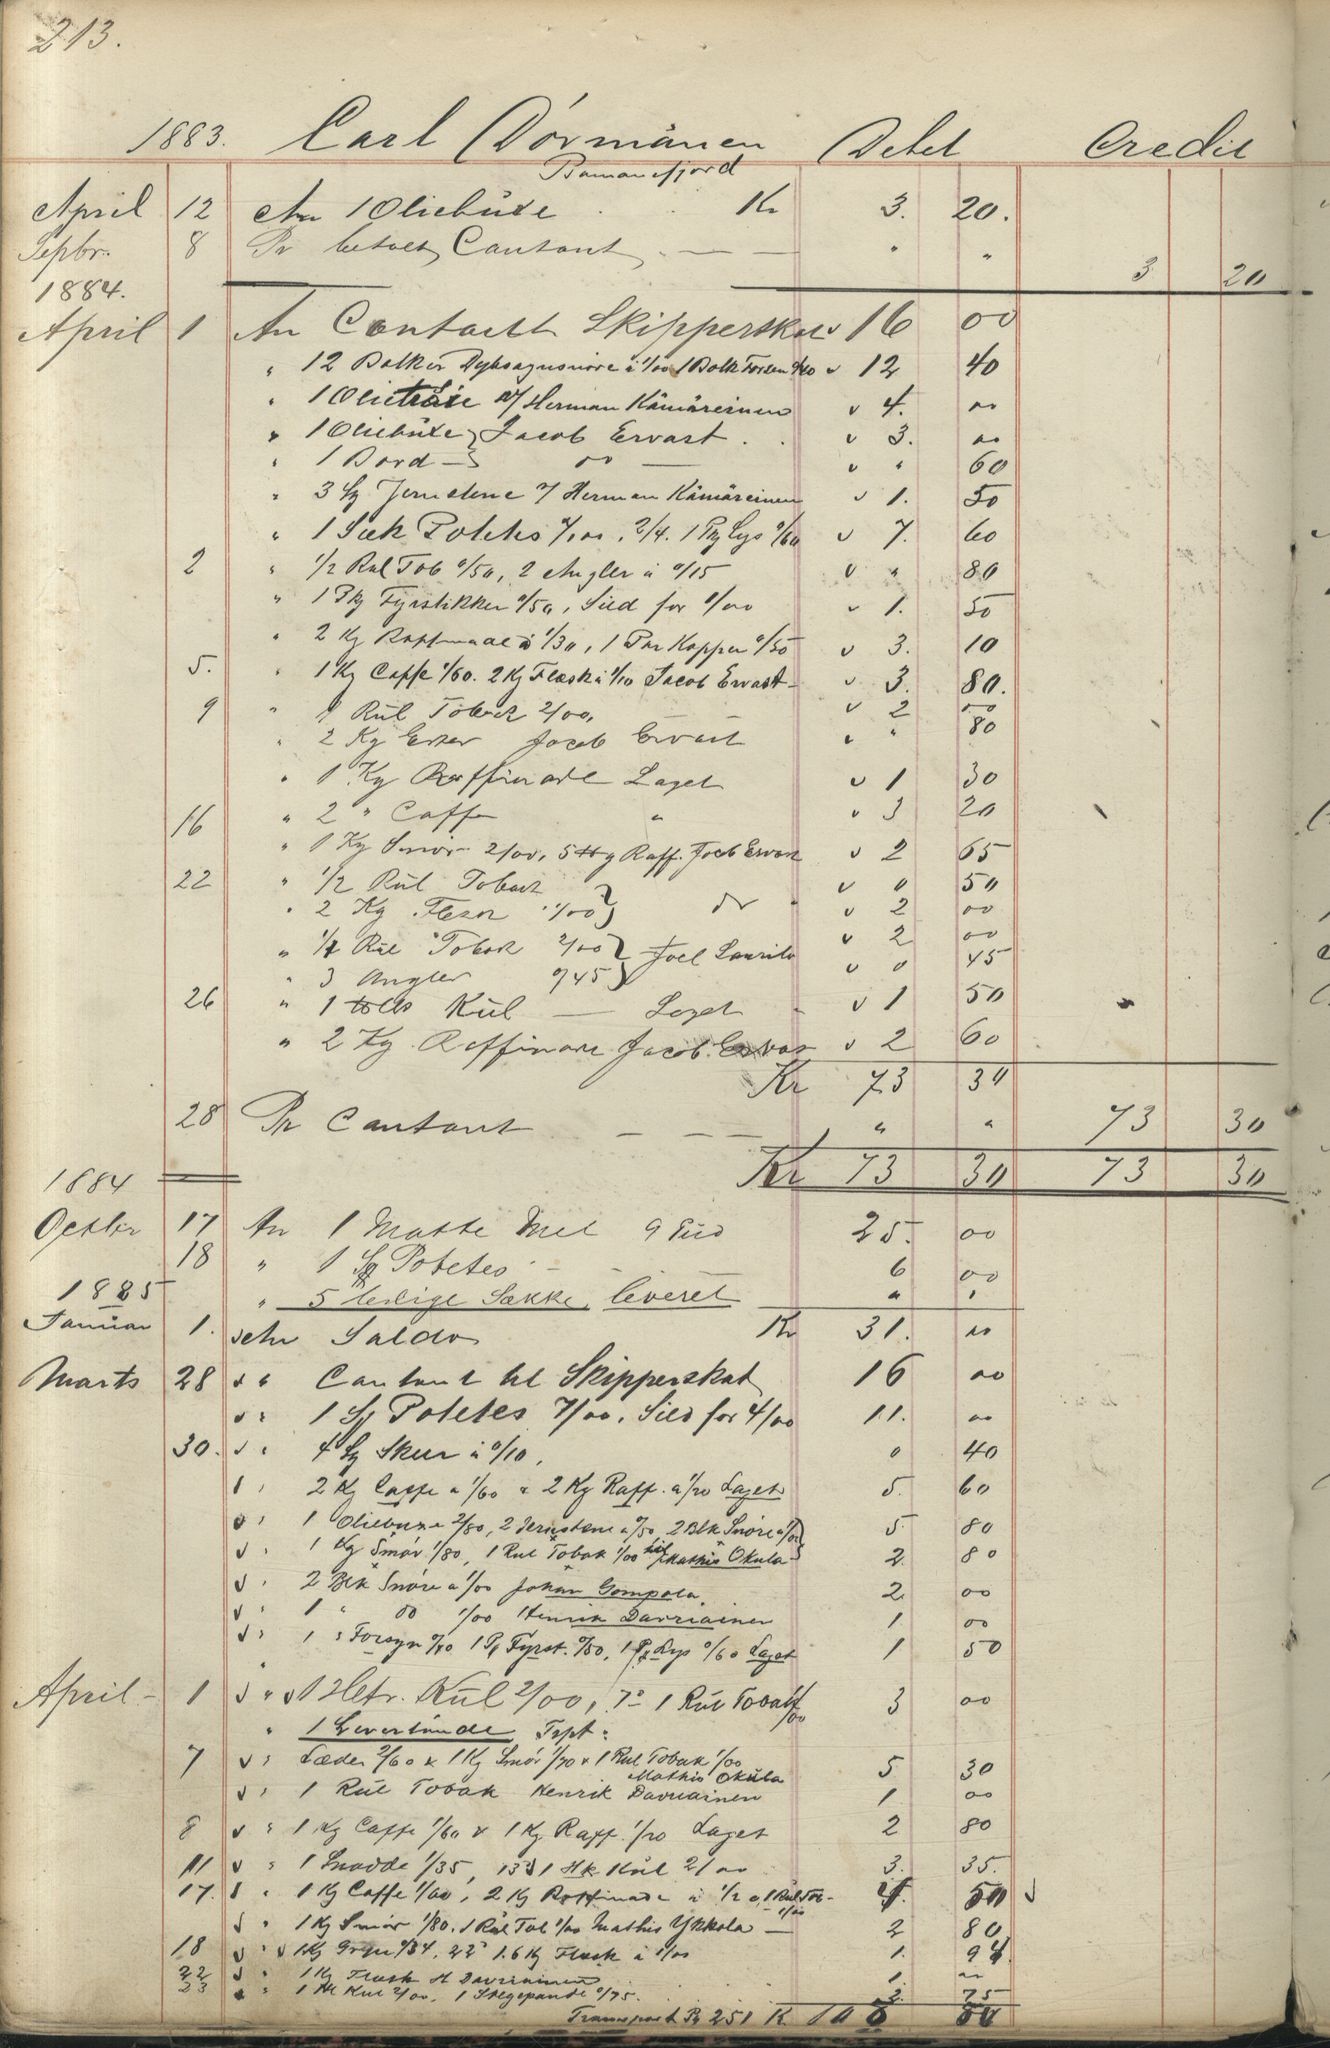 213.
1883. Carl Dörmänen Debet Credit
April 12 An 1 Oliebüxe Kr 3. 20.
Septbr. 8 Pr betalt Contant " " 3 20
1884.
April 1 An Contant Skipperskat v 16 00
" 12 Bolker à 1/00 1 Bolk v 12 40
" 1 Olietröie a/ Herman Kämäreinen v 4. 00
" 1 Oliebüxe } Jacob Ervast v 3. 00
" 1 Bord } do v " 60
" 3 Jernstene a/ Herman Kämäreinen v 1. 50
" 1 Sæk Potetes 7/00, 1 Pk Lys 0/60 v 7. 60
2 " 1/2 Rul Tob 0/50, 2 Angler à 0/15 v " 80
" 1 Pk Fyrstikker 0/50, Sild for 1/00 v 1. 50
" 2 Kg Raffinade à 1/30, 1 Par Kopper 0/50 v 3. 10
5. " 1 Kg Caffe 1/60. 2 Kg Flesk à 1/10 Jacob Ervast v 3. 80.
9 " 1 Rül Toback 2/00, v 2 00
" 2 Kg Erter Jacob Ervast v " 80
" 1 Kg Raffinade Laget v 1 30
16 " 2 " Caffe " v 3 20
" 1 Kg Smör 2/00, 5 Hg Raff. Jacob Ervast v 2 65
22 " 1/2 Rül Toback v 0 50
" 2 Kg Flesk 1/00 } do v 2 00
" 1 Rül Tobak 2/00 } Joel Laurila v 2 00
" 3 Angler 0/45 } v 0 45
26 " 1 Kül — Laget v 1 50
" 2 Kg Raffinade Jacob Ervas v 2 60
Kr 73 30
28 Pr Contant " " 73 30
Kr 73 30 73 30
1884
Octbr 17 An 1 Matte Mel 9 Pud 25. 00
18 " 1 Sk Potetes 6 00
1885 " 5 ledige Sække leveret " "
Januar 1. An Saldo Kr 31. 00
Marts 28 v " Contant til Skipperskat 16 00
v " 1 Sk Potetes 7/00, Sild for 4/00 11. 00
30. v " 4 Skeer à 0/10, 0 40
" 2 Kg Caffe à 1/60 & 2 Kg Raff. à 1/20 Laget 5. 60
v " 1 Oliebuxe 2/80, 2 Jernstene à 0/50, 2 Blk Snöre à 1/00 } 5 80
v " 1 Kg Smör 1/80, 1 Rul Tobak 1/00 til Mathis Okula } 2 80
v " 2 Blk Snöre à 1/00 Johan Gompola 2 00
v " 1 " do 1/00 Henrik Davriainen 1 00
v " 1 " Forsyn 0/40 1 Pk Fyrst. 0/50, 1 Pk Lys 0/60 Laget 1 50
April 1 v " v 1 Hltr. Kül 2/00, 1 Rül Tobak 1/00 3 00
" 1 Levertünde Tpt "
7 v " Læder 2/60 & 1 Kg Smör 1/70 & 1 Rul Tobak 1/00 Mathis Okula 5 30
v " 1 Rül Tobak Henrik Davriainen 1 00
8 v " 1 Kg Caffe 1/60 & 1 Kg Raff. 1/20 Laget 2 80
11 v " 1 Snadde 1/35, 1 Hk Kül 2/00 3. 35.
17. " 1 Kg Caffe 1/60, 2 Kg Raffinade à 1/20, 1 Rül Tob 50 v
v " 1 Kg Smör 1/80. 1 Rül Tob 1/00 Mathis Ykkola 2 80
18 v " v 1 Kg Gryn 0/34, 1.6 Kg Flesk à 1/00 1. 94
22 v " 1 Kg Flesk H Davriainen 1. 00
23 " 1 Hl Kul 2/00, 1 Stegepande 0/75. 2. 75
Transport Pg 251 K